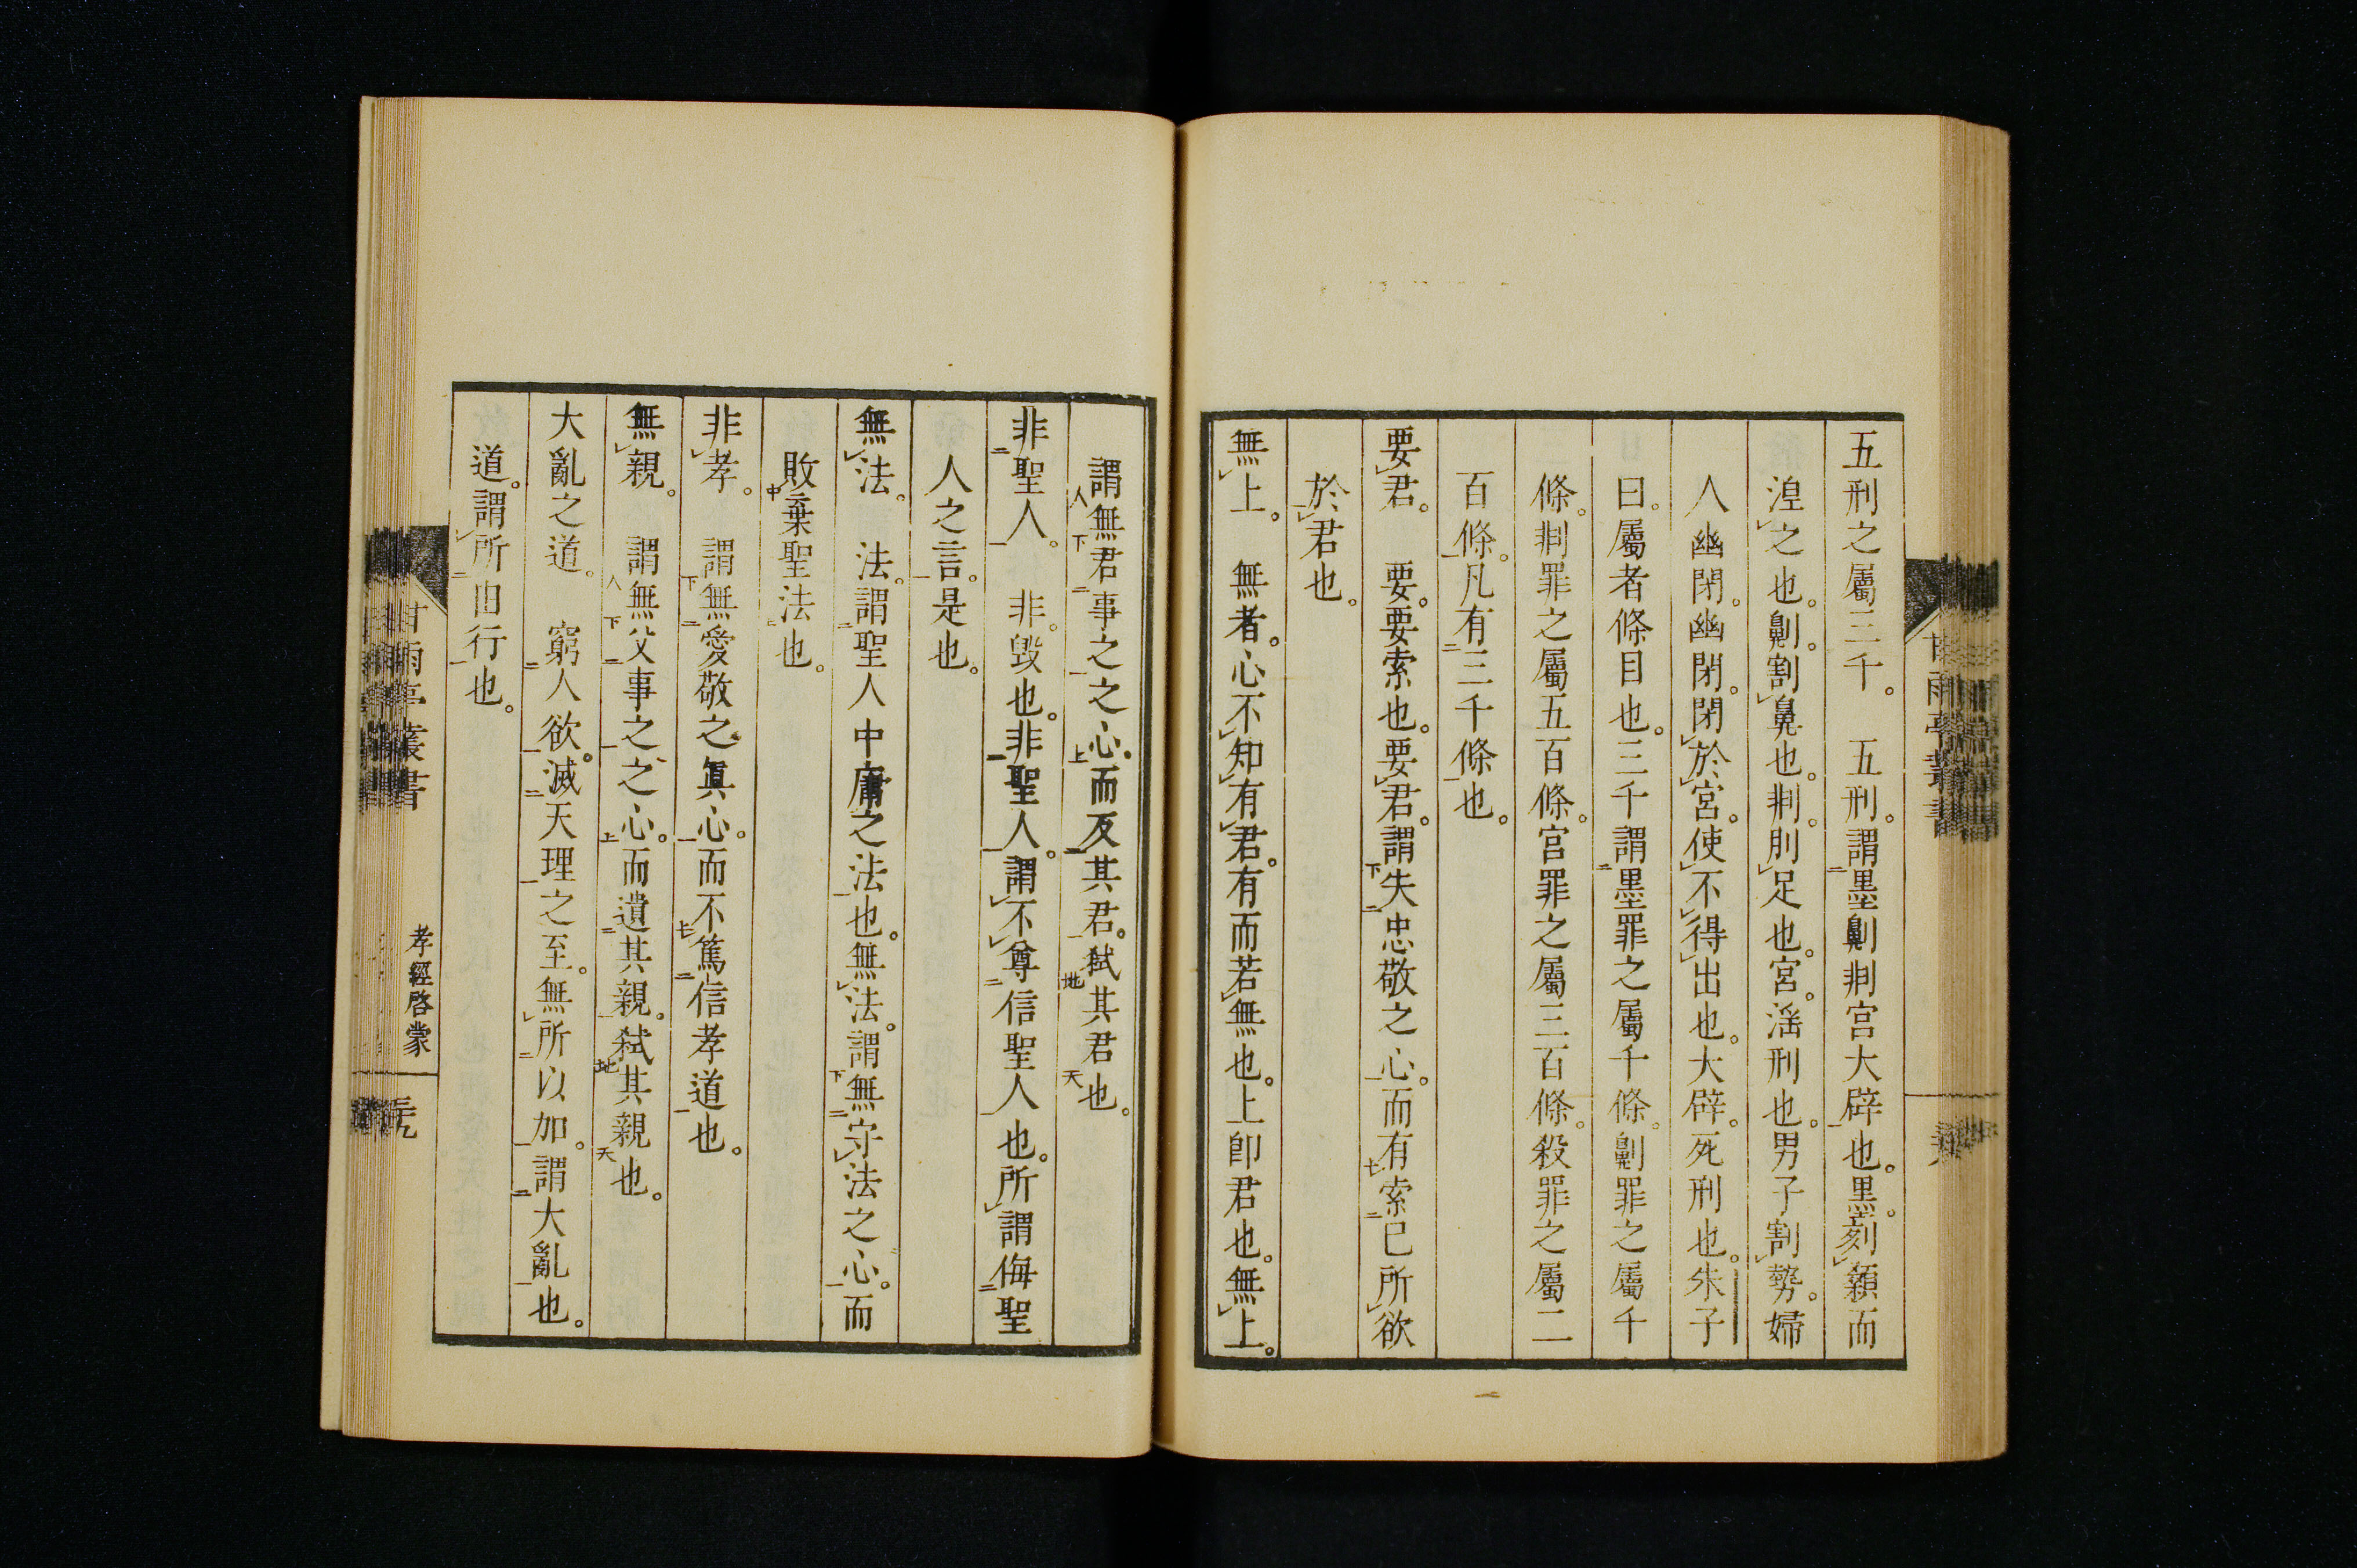 五刑之屬三千。　五刑。謂墨劓剕宮大辟也。墨。刻顙而
湼之也。劓。割鼻也。剕。刖足也。宮。淫刑也。男子割勢。婦
人幽閉。幽閉。閉於宮。使不得出也。大辟。死刑也。朱子
曰。屬者條目也。三千謂墨罪之屬千條。劓罪之屬千
條。剕罪之屬五百條。宮罪之屬三百條。殺罪之屬二
百條。凡有三千條也。
要君。　要。要索也。要君。謂失忠敬之心。而有索己所欲
於君也。
無上。　無者。心不知有君。有而若無也。上卽君也。無上。
謂無君事之之心。而反其君。弑其君也。
非聖人。　非。毀也。非聖人。謂不尊信聖人也。所謂侮聖
人之言。是也。
無法。　法。謂聖人中庸之法也。無法。謂無守法之心。而
敗棄聖法也。
非孝。　謂無愛敬之眞心。而不篤信孝道也。
無親。　謂無父事之之心。而遺其親。弑其親也。
大亂之道。　窮人欲。滅天理之至。無所以加。謂大亂也。
道。謂所由行也。
甘雨亭叢書
孝經啓蒙
甘雨亭叢書